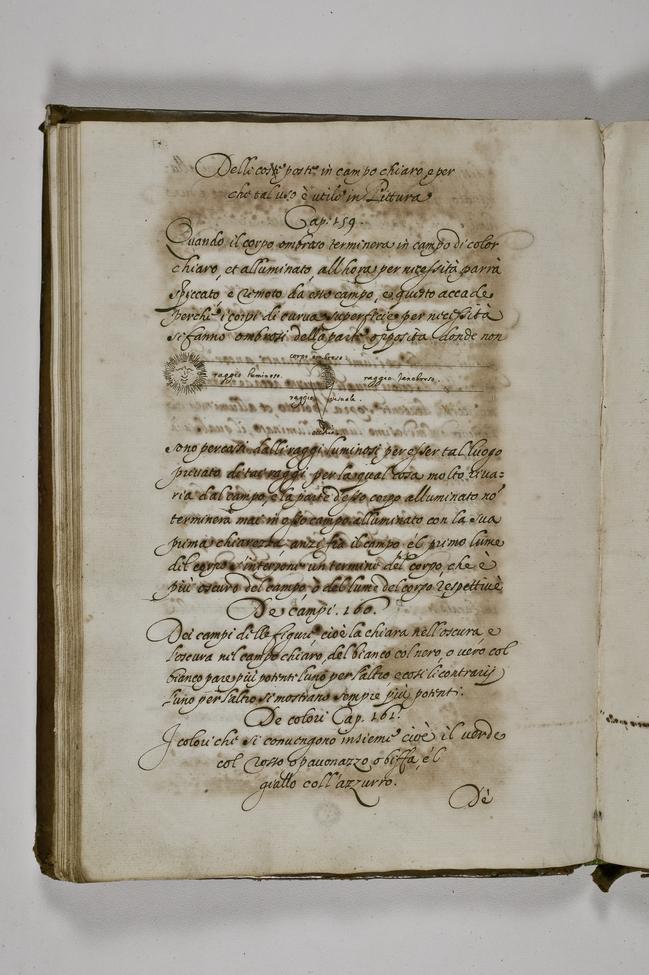 Delle cose poste in campo chiaro e per
che tal uso è utile in Pittura
Cap. 159.
Quando il corpo ombroso terminera in campo di color
chiaro, et alluminato, all hora per necessità parrà
spiccato, e remoto da esso campo, e questo accade
perche i corpi di curua superficie per necessità
si fanno ombrosi della parte opposita donde non
corpo ombroso.
raggio luminoso.
raggio tenebroso.
raggio visuale.
occhio
sono percossi dalli raggi luminosi per esser tal luogo
privato di tai raggi per la qual cosa molto si ua=
ria dal campo, e la parte d'esso corpo alluminato no
terminerà mai in esso campo alluminato con la sua
prima chiarezza anzi fra il campo e'l primo lume
del corpo s'interpone un termine del corpo, che è
più oscuro del campo, ò del lume del corpo respettiuè
De campi. 160.
Dei campi delle figure, cioè la chiara nell'oscura, e
l'oscura nel campo chiaro, del bianco col nero, o uero col
bianco pare più potente l'uno per l'altro, e così li contrarij
l'uno per l'altro si mostrano sempre più potenti.
De colori Cap. 161.
I colori che si conuengono insieme cioè il uerde
col rosso o pauonazzo, o biffa, e'l
giallo coll'azzurro.
De